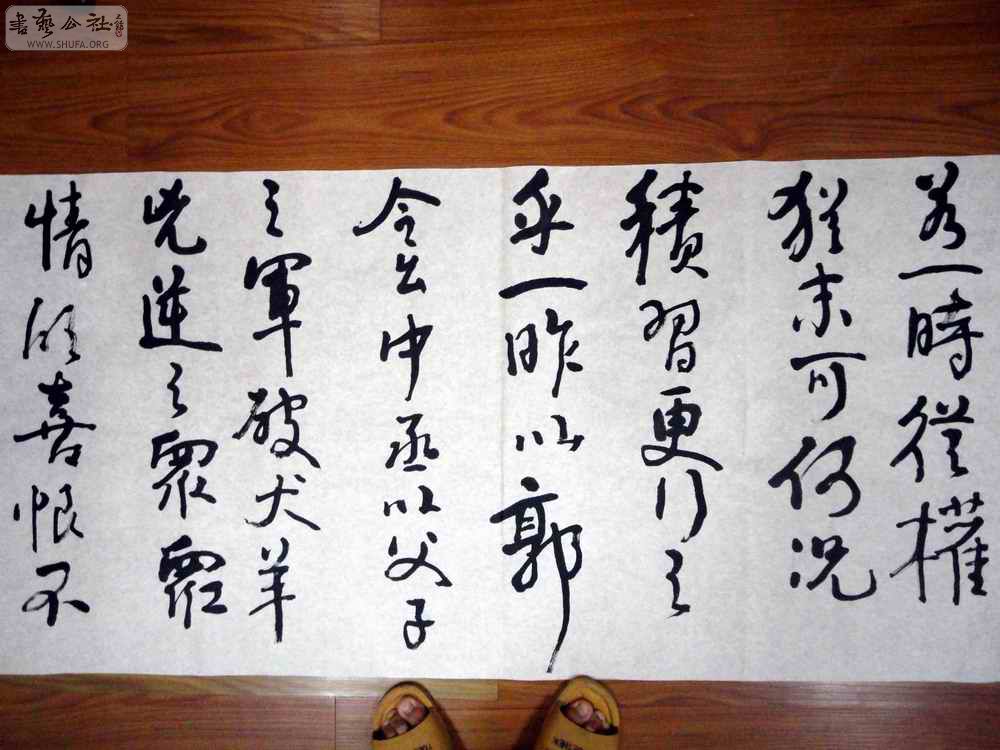 若一時從權
猶未可何況
積習更行之
乎一昨以郭
令公中丞以父子
之軍破犬羊
兇逆之眾眾
情欣喜恨不
書藝公社
WWW.SHUFA.ORG